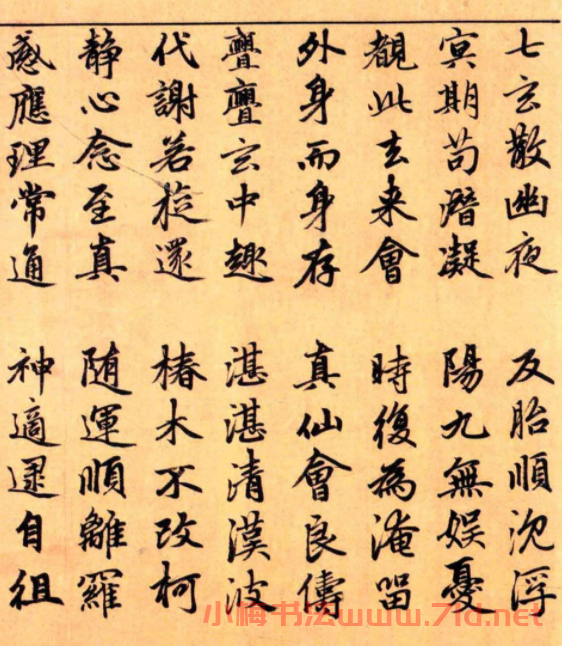 七玄散幽夜 反胎順沈浮
冥期苟潛凝 陽九無娱憂
觀此去来會 時復為淹留
外身而身存 真仙會良儔
亹亹玄中趣 湛湛清漢波
代謝若旋還 椿木不改柯
静心念至真 随運順離羅
感應理常通 神適逮自徂
小梅书法www.7ld.net